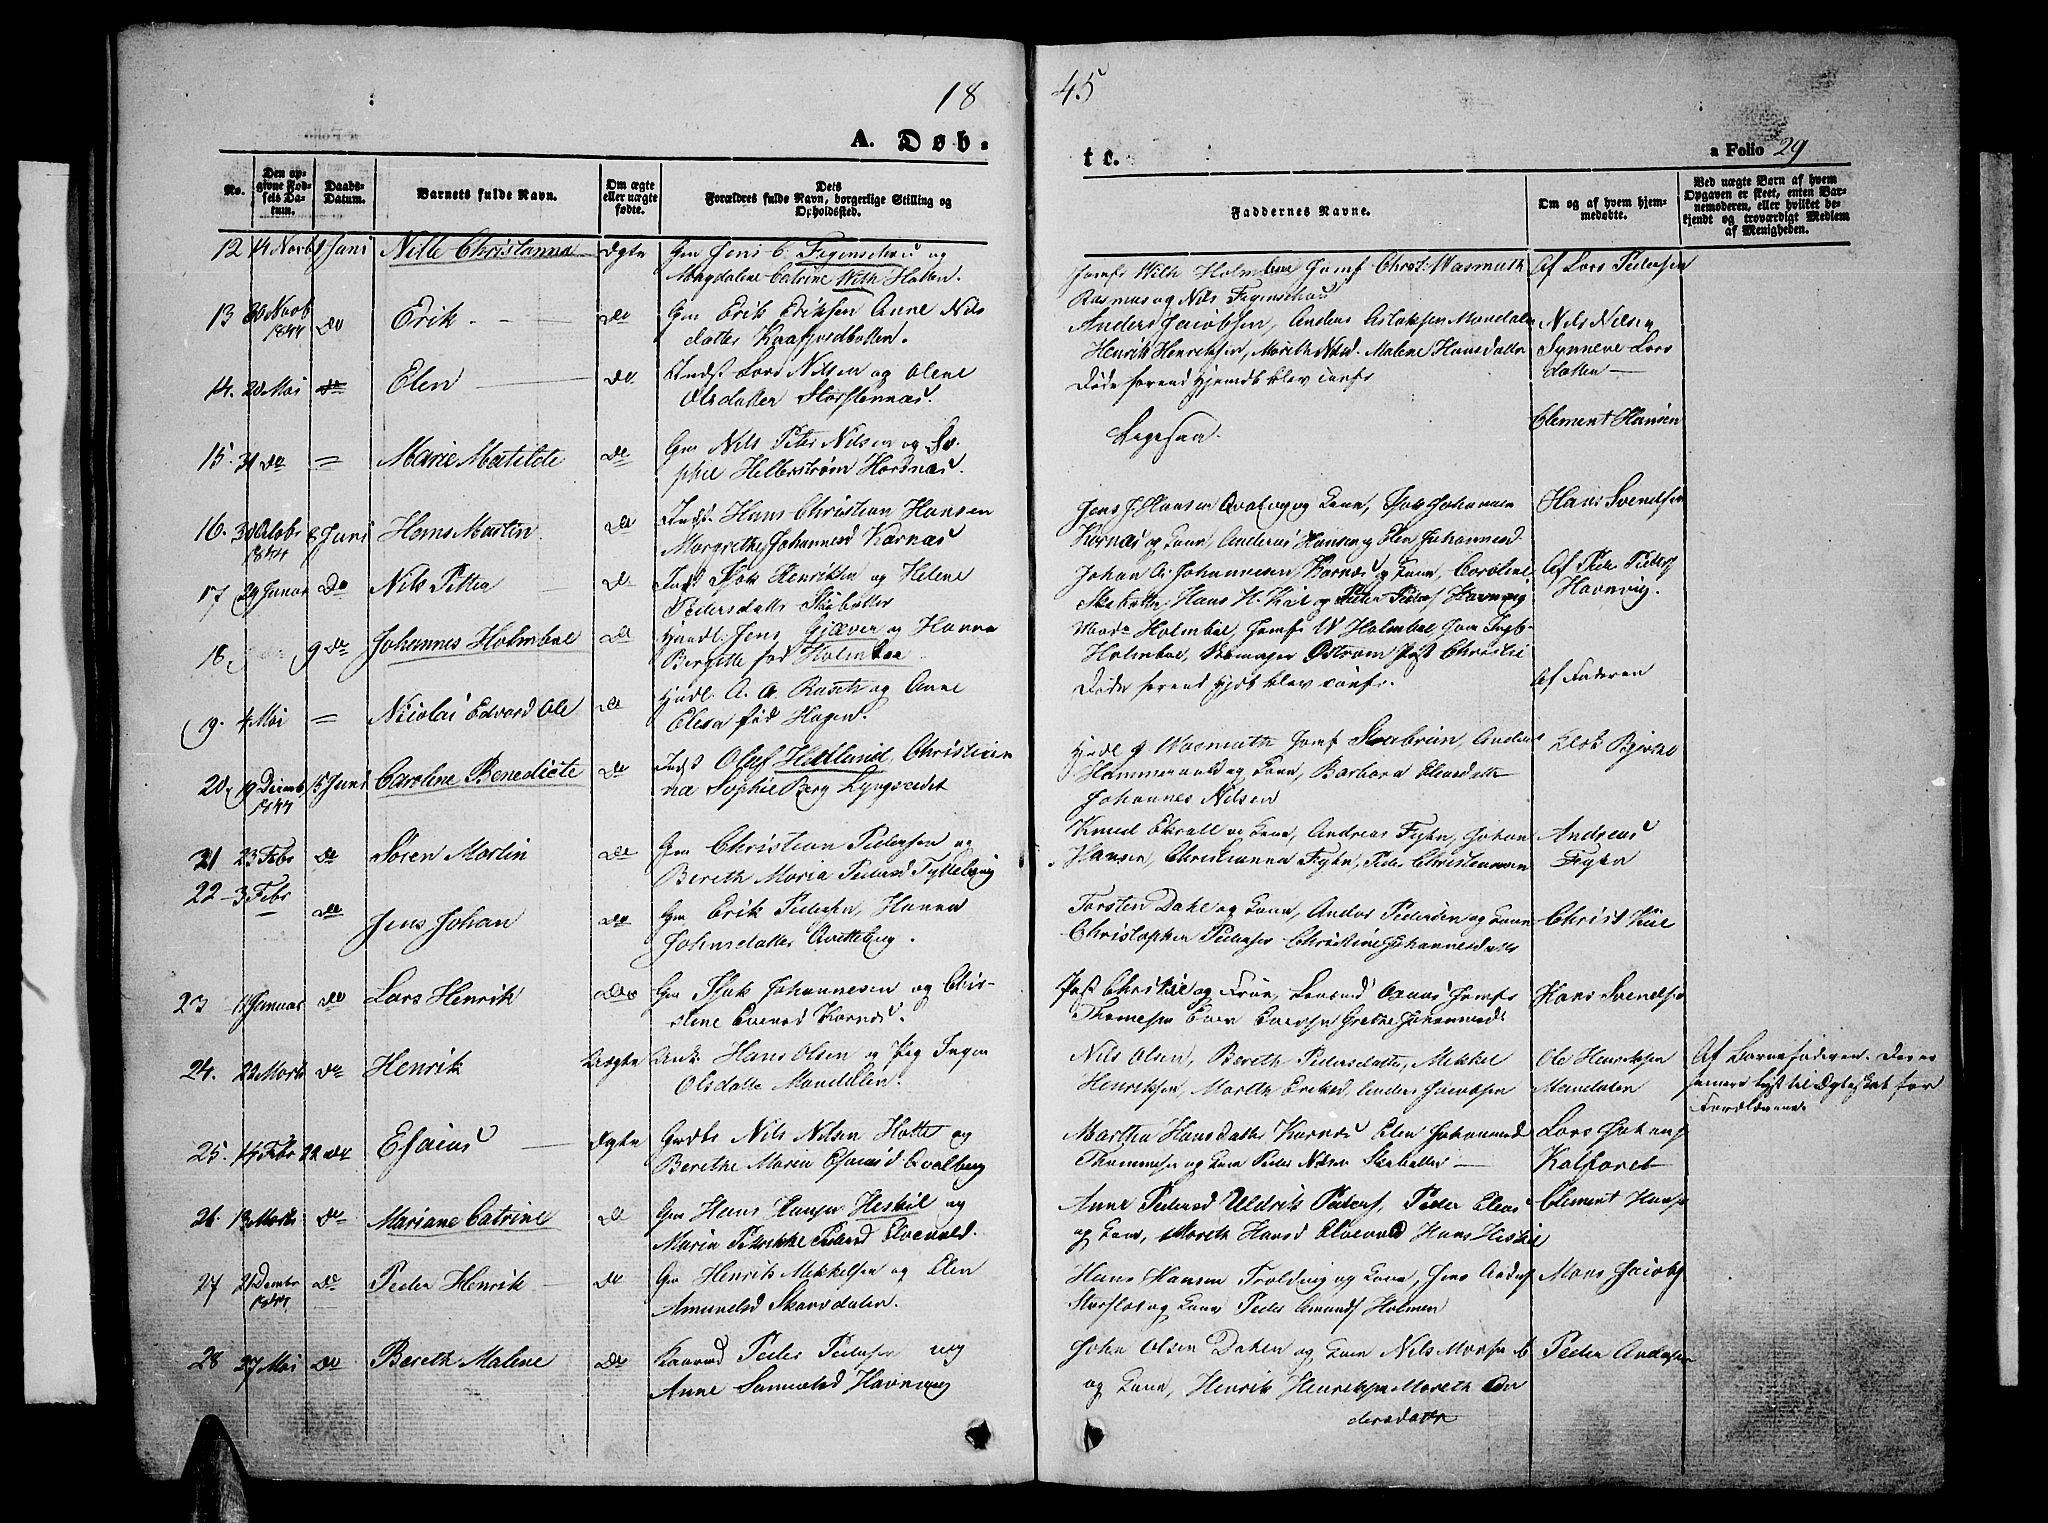 18
45
A. Døb-
te.
a Folio 29
No.
Den op-
givne Fød-
sels Da-
tum.
Daabs-
Datum.
Barnets fulde Navn.
Om ægte
eller uægte
fødte.
Dets
Forældres fulde Navn, borgerlige Stilling og
Opholdssted.
Faddernes Navne.
Om og af hvem hjem-
medøbte.
Ved uægte Børn af hvem
Opgaven er skeet, enten Bar-
nemoderen, eller hvilket be-
kjendt og troværdigt Medlem
af Menigheden.
12 14 Novb 1 Juni Nille Christianna Ægte Gm Jens C. Figenschou og
Magdalene Catrine With Hatten.
Jomfr With Holmboe Jomf Christ: Wasmuth
Rasmus og Nils Figenschou
Af Lars Pedersen
13 30 Novb 1844 Do Erik De Gm Erik Eriksen Anne Nils
datter Kaafjordbotten.
Anders Jacobsen, Anders Aslaksen Mandalen
Henrik Henriksen, Marith Nilsd. Malene Hansdatter
Nils Nilsen
Synneve Lars
datter
14. 20 Mai Elen De Indst Lars Nilsen og Olene
Olsdatter Storstennæs.
Døde forend Hjemdb blev confr
15. 31 De = Marie Matilde De Gm Nils Peter Nilsen og So-
phie Hellestrøm Hordnæs.
Ligesaa.
Clement Hansen
16. 30 Octobr 1844 8 Juni Hans Martin De Indst Hans Christian Hansen
Margrethe Johannesd Karnæs
Jens J. Hansen og Kone, Isak Johannesen
Karnæs og Kone, Anders Hansen og Elen Johannesd
Hans Svendsen
17 29 Januar Do Nils Petter De Indst Isak Henriksen og Helene
Pedersdatter Skibotten
Johan A. Johannesen Karnæs og Kone, Caroline
Skibotten, Hans H. Kiil og Peter Peders Havnvig
Af Peder Peders
Havnvig.
18 9 De Johannes Holmboe De Handl. Jens Gjæver og Hanna
Bergitte fød Holmboe
Mad Holmboe, Jomfr W Holmboe Jom Ingb-
Holmboe, Ostrom Past Christie
19. 4 Mai = Nicolai Edvard Ole De Handl. A. A. Rasch og Anne
Elisa fød Hagen.
Døde forend Hjdb blev confr.
Af Faderen
20. 19 Decmb 1844 15 Juni Caroline Benedicte De Indst Oluf Hedlund, Christian
na Sophie Berg Lyngseidet
Handl J Wasmuth Jomf Stenbrun, Anders
Hammervold og Kone, Barbara
Johannes Nilsen
Klok Bjerke
21 23 Febr De Søren Martin De Gm Christian Pedersen og
Bereth Maria Pedersd Tyttebærvig
Knud Ekroll og Kone, Andreas Figen, Johan
Hansen, Christianna Figen, Peder Christiansen
Andreas
Figen
22 3 Febr De Jens Johan De Gm Erik Pedersen, Hanna
Johnsdatter Qvitteberg.
Torsten Dahl og Kone, Anders Pedersen og Kone
Christopher Peders Christine Johannesdatter
Christ Kiil
23 18 Januar De Lars Henrik De Gm Isak Johannesen og Chir-
stine Evensd Karnæs.
Past Christie og Frue, Lensmd Axnæs Jomfr
Thomesen Even Evensen Grethe Johannesd
Hans Svendsen
24. 22 Marts De Henrik Uægte Unk. Hans Olsen og Pig Inger
Olsdatter Mandalen.
Nils Olsen, Bereth Pedersdatter, Mikkel
Henriksen, Marith Eriksd, Anders Jacobsen
Ole Henriksen
Mandalen
Af Barnefaderen. Der er
senere lyst til Ægteskab for
Forældrene
25. 14 Febr 22 De Esaias Ægte Gaardbr Nils Nilsen Hatte og
Berethe Maria Esaiasd Qvalberg
Martha Hansdatter Karnæs Elen Johannesd
Thomesen og Kone Peder Nilsen Skibotten
Lars Johans
Kalfaret
26. 13 Marts De Mariane Catrine De Gm Hans Hansen Heskil og
Maria Petrikke Pedersd Elvevold.
Anne Pedersd Uldrik Peders, Peder Elias
og Kone, Mareth Hansd Elvevold Hans Heskil
Clement Hans
27 21 Decmbr 1844 De Peder Henrik De Gm Henrik Mikkelsen og Elen
Amundsd Skarvdalen.
Hans Hansen Troldvig og Kone, Jens Anders
Storslet og Kone Peder Amunds Holmen
Mons Jacobs
28 27 Mai De Bereth Malene De Peder Pedersen og
Anne Samuelsd Havnvig
John Olsen Dalen og Kone Nils Monsen
og Kone, Henrik Henriksen Mareth An
dersdatter
Peder Andersen